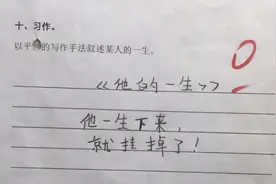 十、习作。
以平的写作手法叙述某人的一生。
《他的一生》
他一生下来，
就挂掉了！